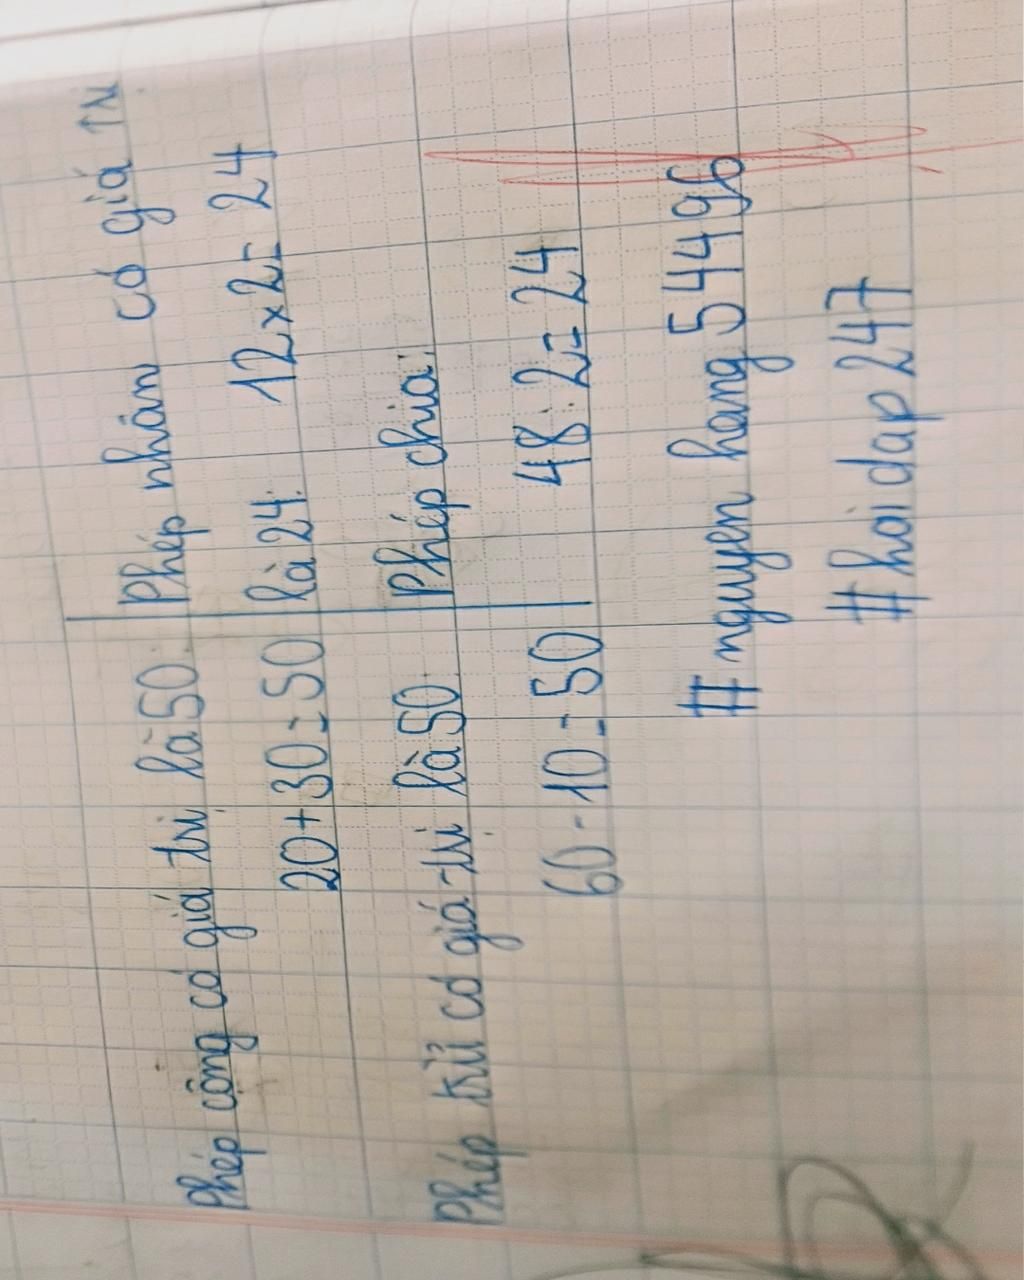 Phép cộng có giá trị là 50.
20 + 30 = 50
Phép trừ có giá trị là 50.
60 - 10 = 50
Phép nhân có giá trị
là 24. 12 x 2 = 24
Phép chia:
48 : 2 = 24
# nguyen hang 54496
# hoi dap 247